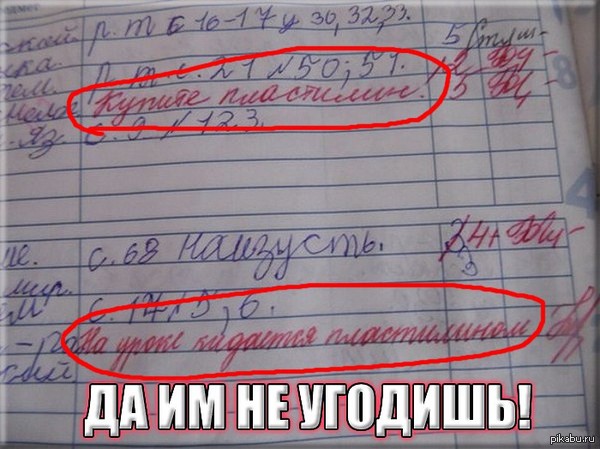 р.т с 16-17 у 30, 32, 33.
р.т с. 21 № 50; 51.
Купите пластилин!
яз. с. 9 № 123.
с. 68 наизусть.
мир.
с. 14 № 5, 6.
На уроке кидается пластилином
ДА ИМ НЕ УГОДИШЬ!
pikabu.ru